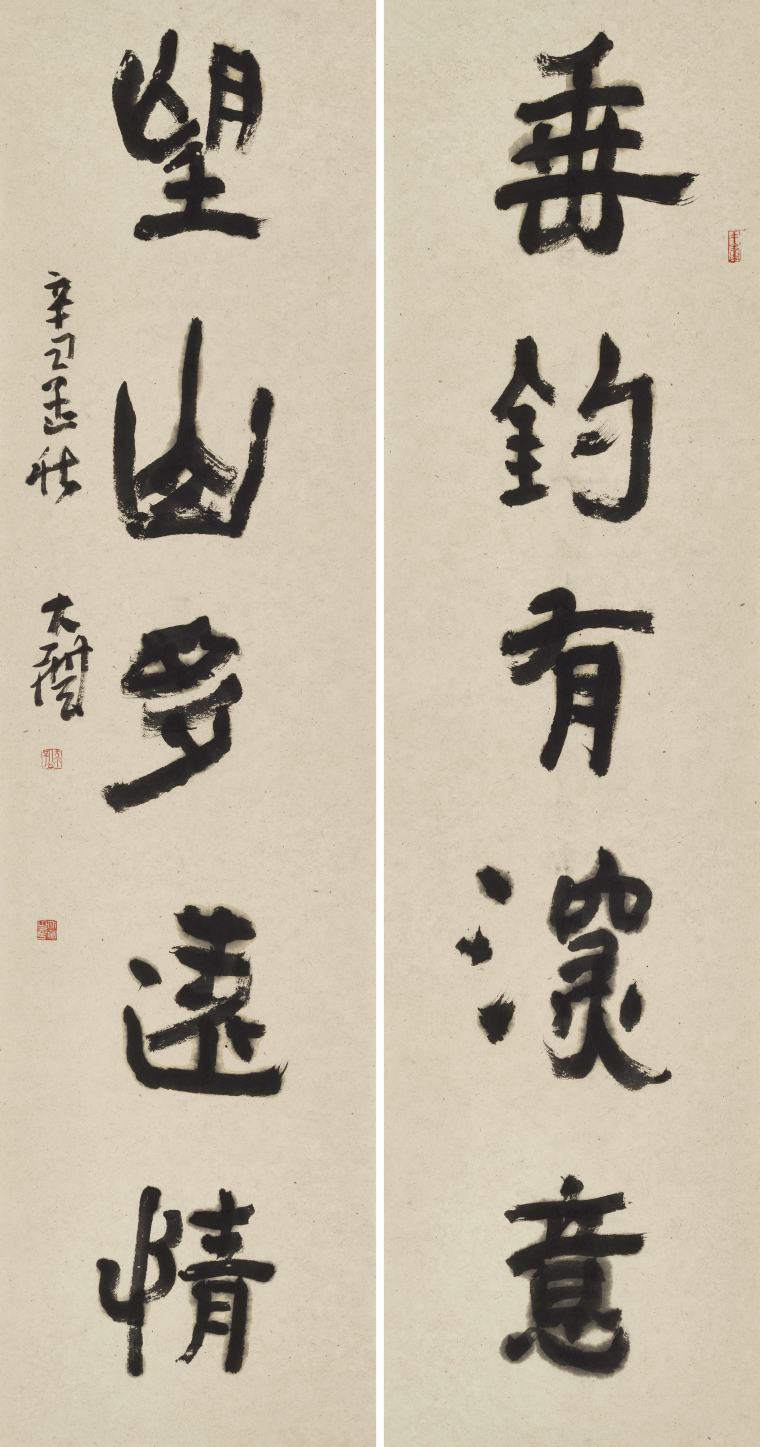 垂釣有深意
望山多遠情
辛丑孟秋 大